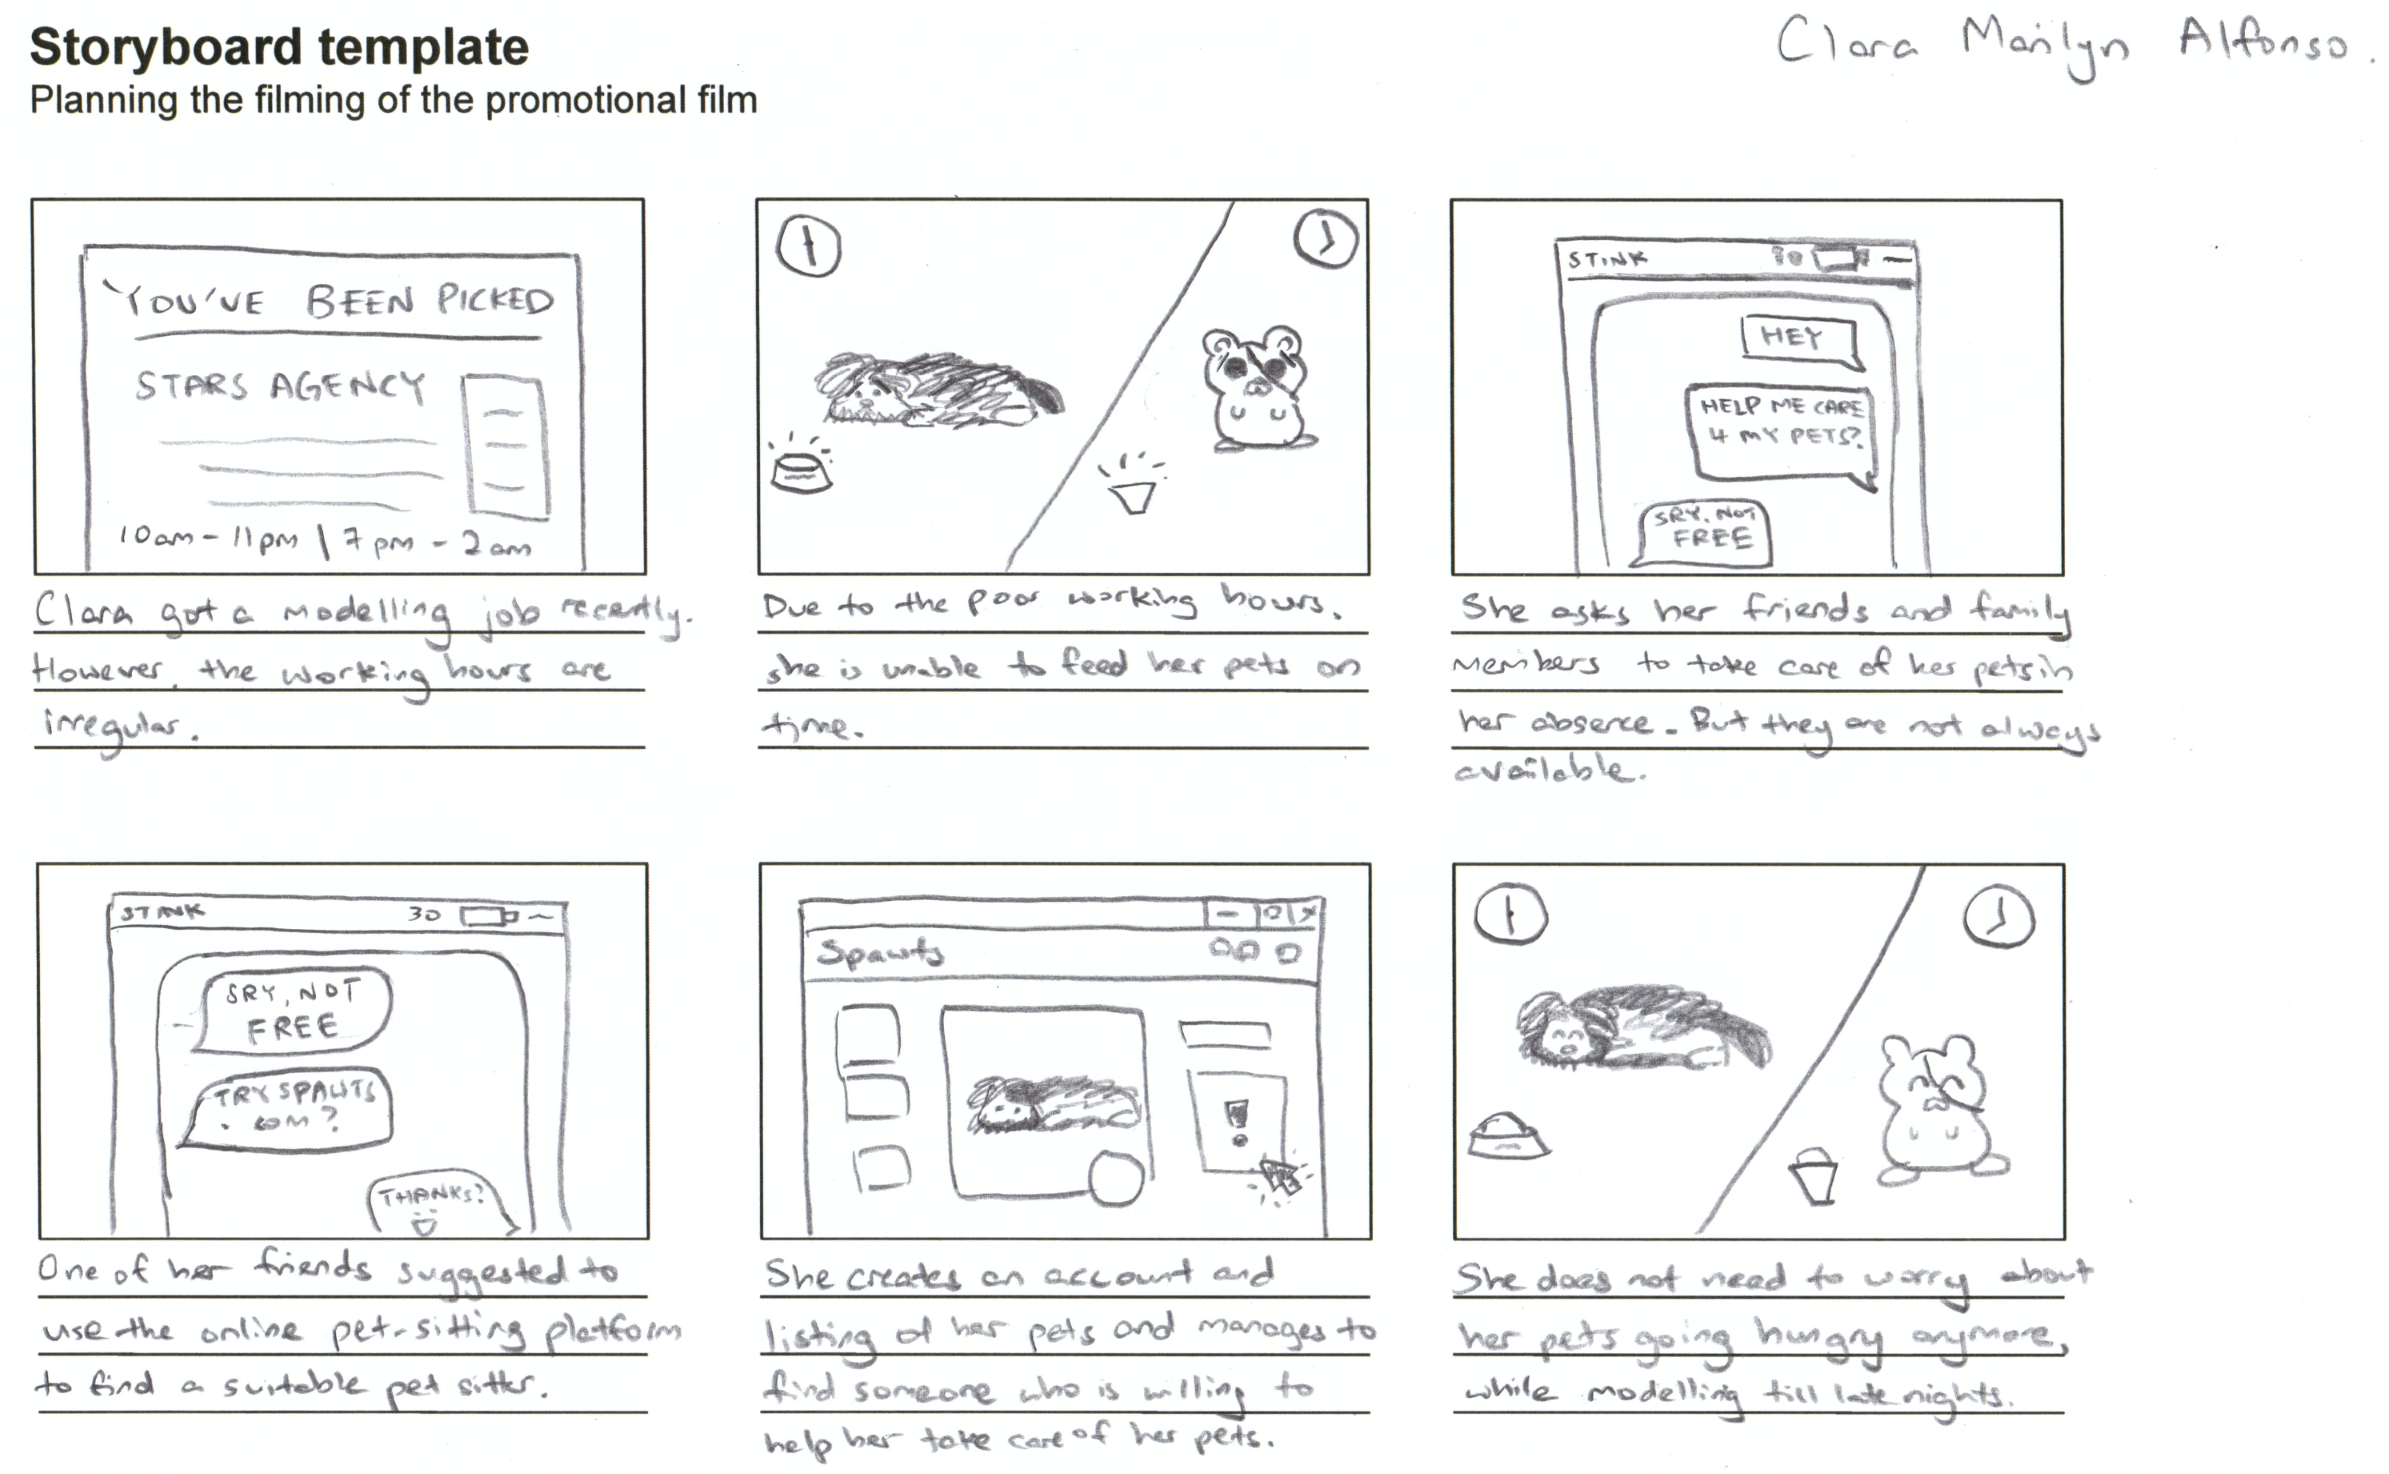 Storyboard template
Clara Marilyn Alfonso.
Planning the filming of the promotional film
YOU'VE BEEN PICKED
STARS AGENCY
10am - 11pm | 7pm - 2am
Clara got a modelling job recently.
However, the working hours are
irregular.
Due to the poor working hours,
she is unable to feed her pets on
time.
STINK 30
HEY
HELP ME CARE
4 MY PETS?
SRY, NOT
FREE
She asks her friends and family
members to take care of her pets in
her absence. But they are not always
available.
STINK 30
SRY, NOT
FREE
TRY SPAWTS
.COM?
THANKS?
One of her friends suggested to
use the online pet-sitting platform
to find a suitable pet sitter.
Spawts
!
She creates an account and
listing of her pets and manages to
find someone who is willing to
help her take care of her pets.
She does not need to worry about
her pets going hungry anymore,
while modelling till late nights.